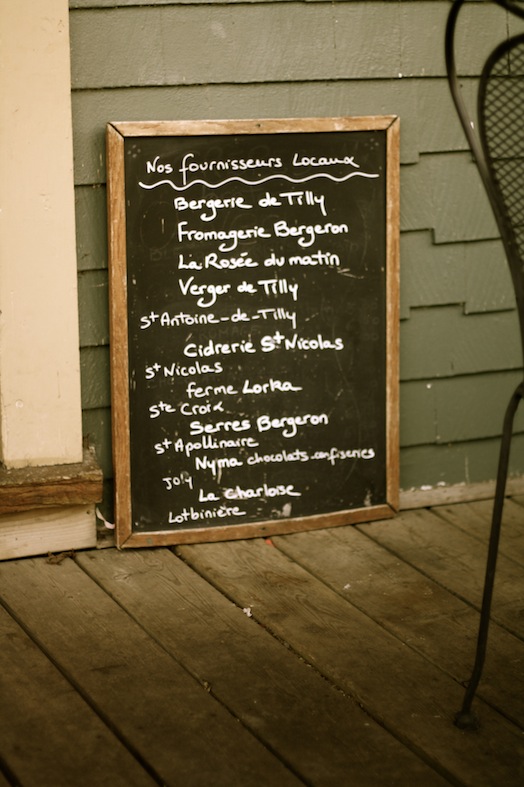 Nos fournisseurs Locaux
Bergerie de Tilly
Fromagerie Bergeron
La Rosée du matin
Verger de Tilly
St Antoine-de-Tilly
Cidrerie St Nicolas
St Nicolas
ferme Lorka
Ste Croix
Serres Bergeron
St Apollinaire
Nyma chocolats-confiseries
Joly
La Charloise
Lotbinière